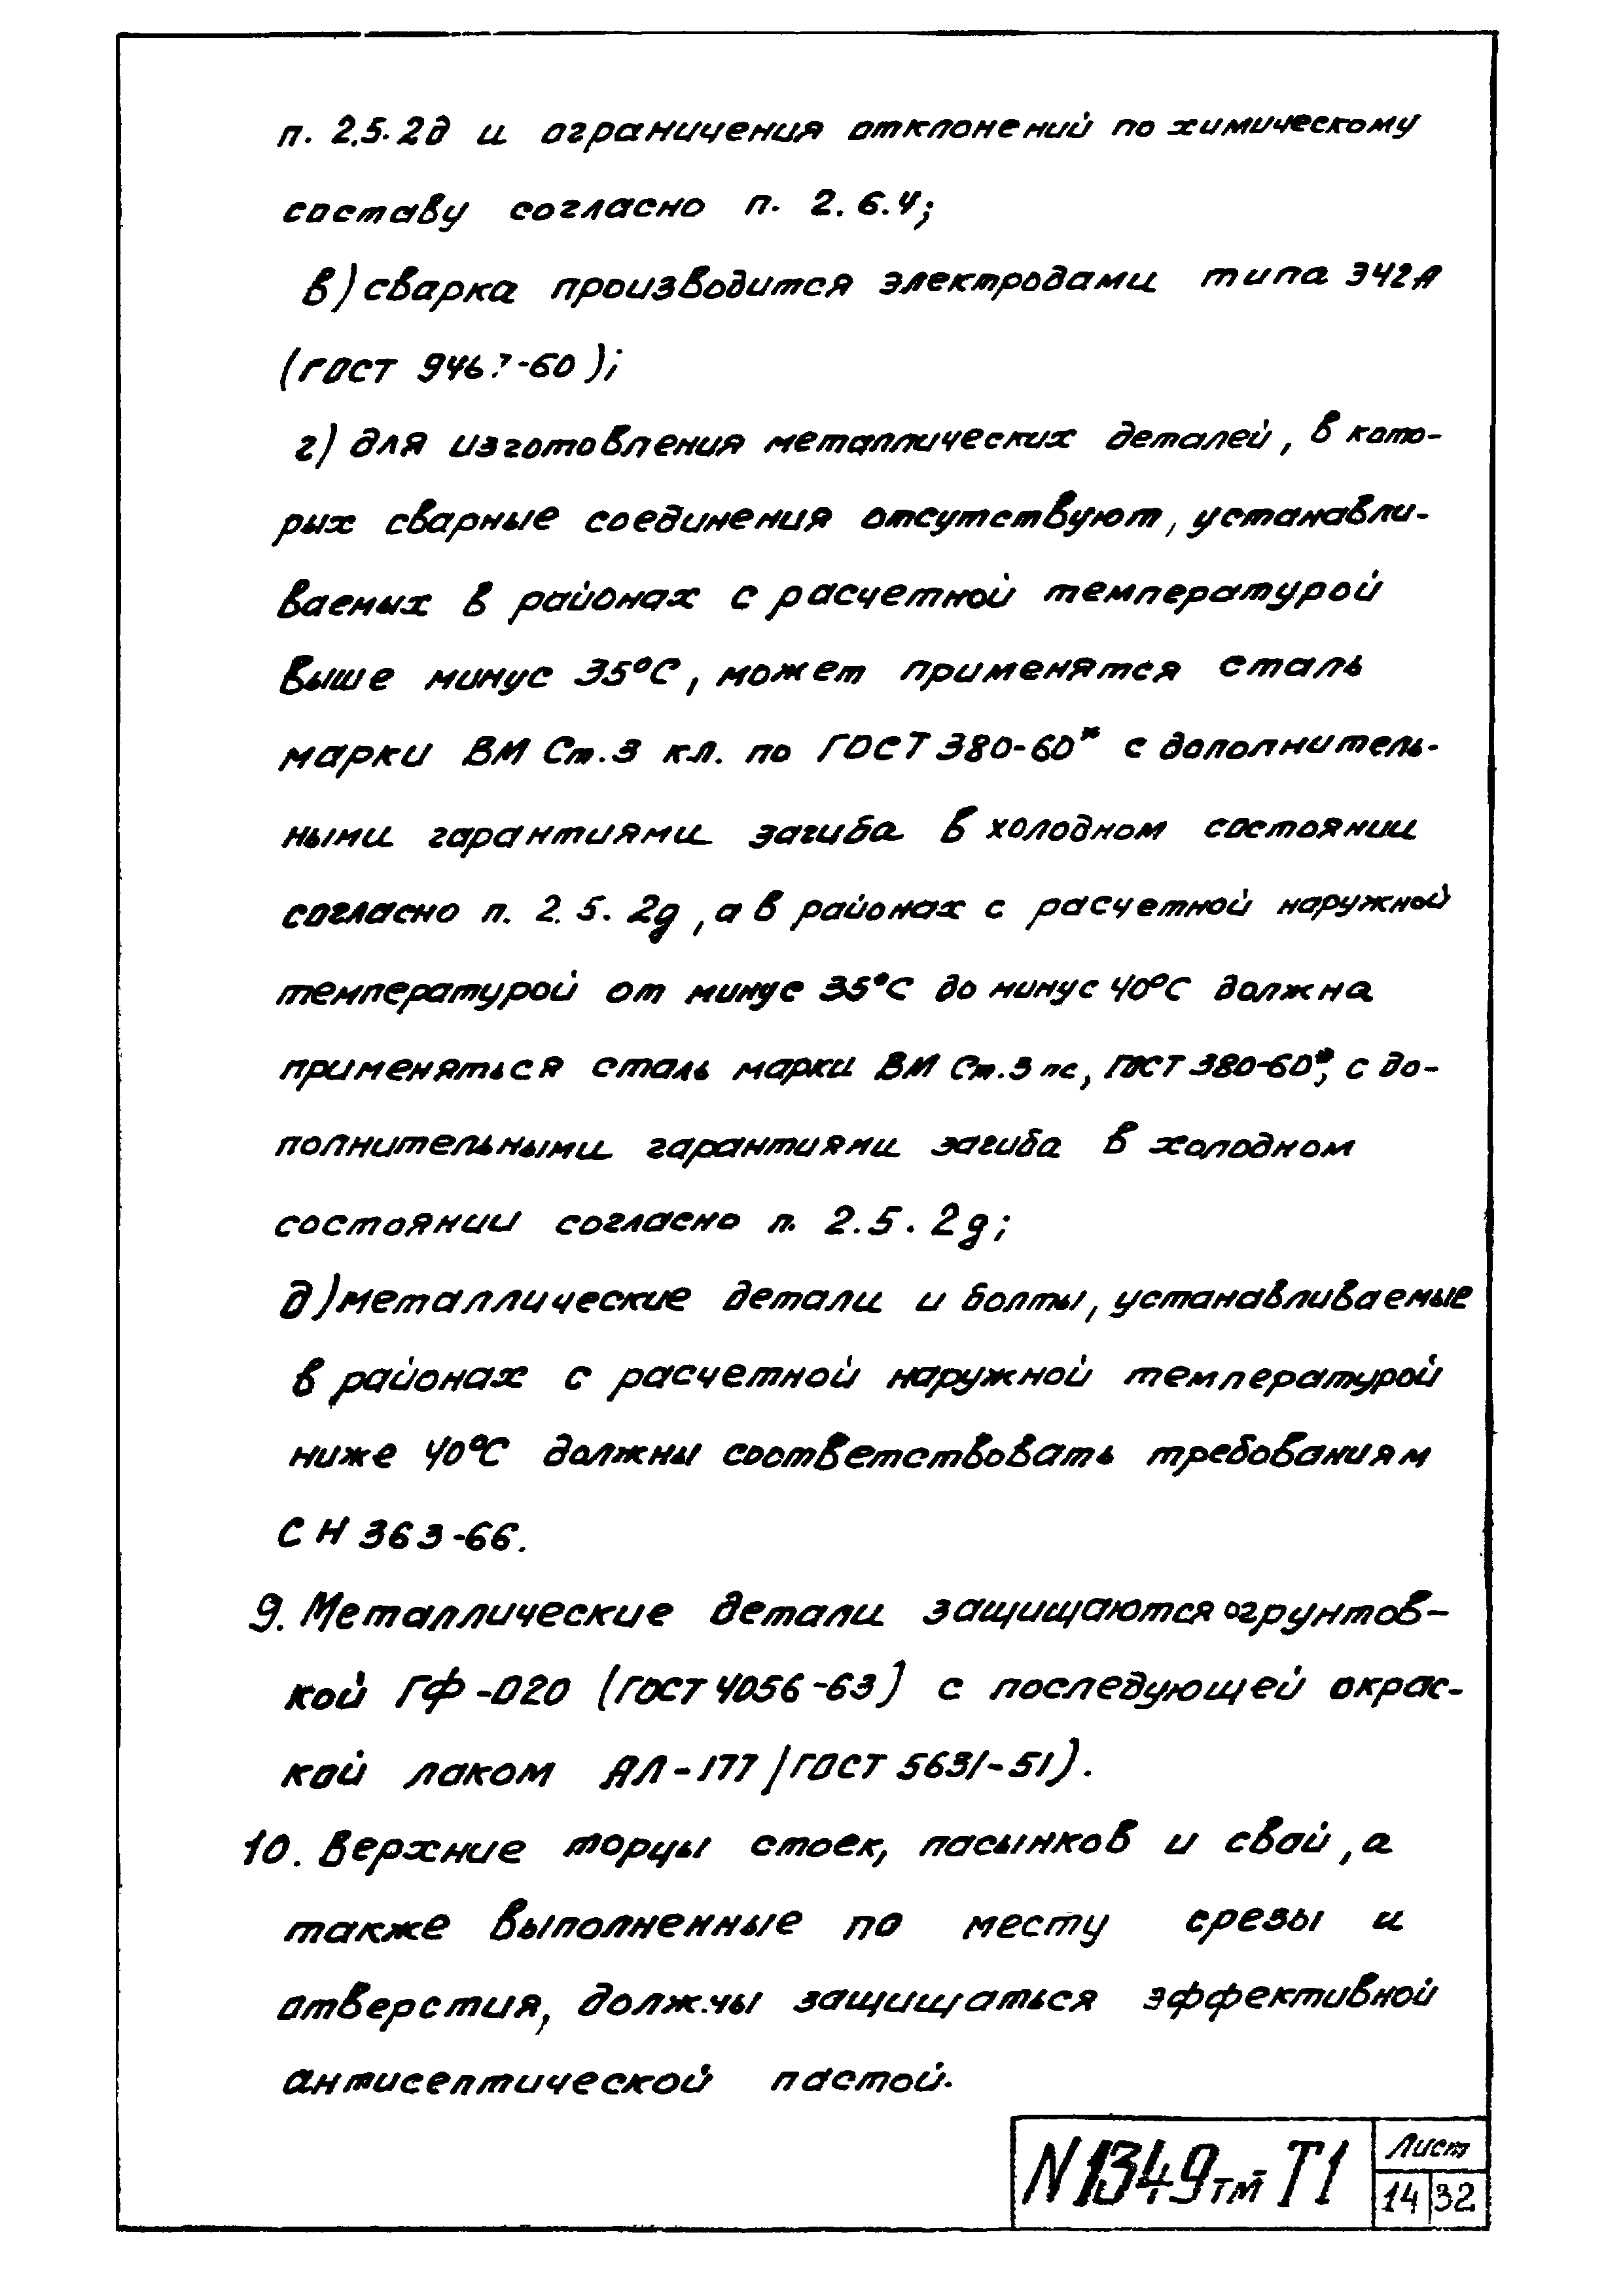 п. 2.5.2д и ограничения отклонений по химическому
составу согласно п. 2.6.4;
в) сварка производится электродами типа Э42А
(ГОСТ 9467-60);
г) для изготовления металлических деталей, в кото-
рых сварные соединения отсутствуют, устанавли-
ваемых в районах с расчетной температурой
выше минус 35°С, может применятся сталь
марки ВМ Ст.3 кл. по ГОСТ 380-60* с дополнитель-
ными гарантиями загиба в холодном состоянии
согласно п. 2.5.2д, а в районах с расчетной наружной
температурой от минус 35°С до минус 40°С должна
применяться сталь марки ВМ Ст.3 пс, ГОСТ 380-60*, с до-
полнительными гарантиями загиба в холодном
состоянии согласно п. 2.5.2д;
д) металлические детали и болты, устанавливаемые
в районах с расчетной наружной температурой
ниже 40°С должны соответствовать требованиям
СН 363-66.
9. Металлические детали защищаются огрунтов-
кой ГФ-020 (ГОСТ 4056-63) с последующей окрас-
кой лаком АЛ-177 (ГОСТ 5631-51).
10. Верхние торцы стоек, пасынков и свай, а
также выполненные по месту срезы и
отверстия, должны защищаться эффективной
антисептической пастой.
N1349тм-Т1
Лист
14 32